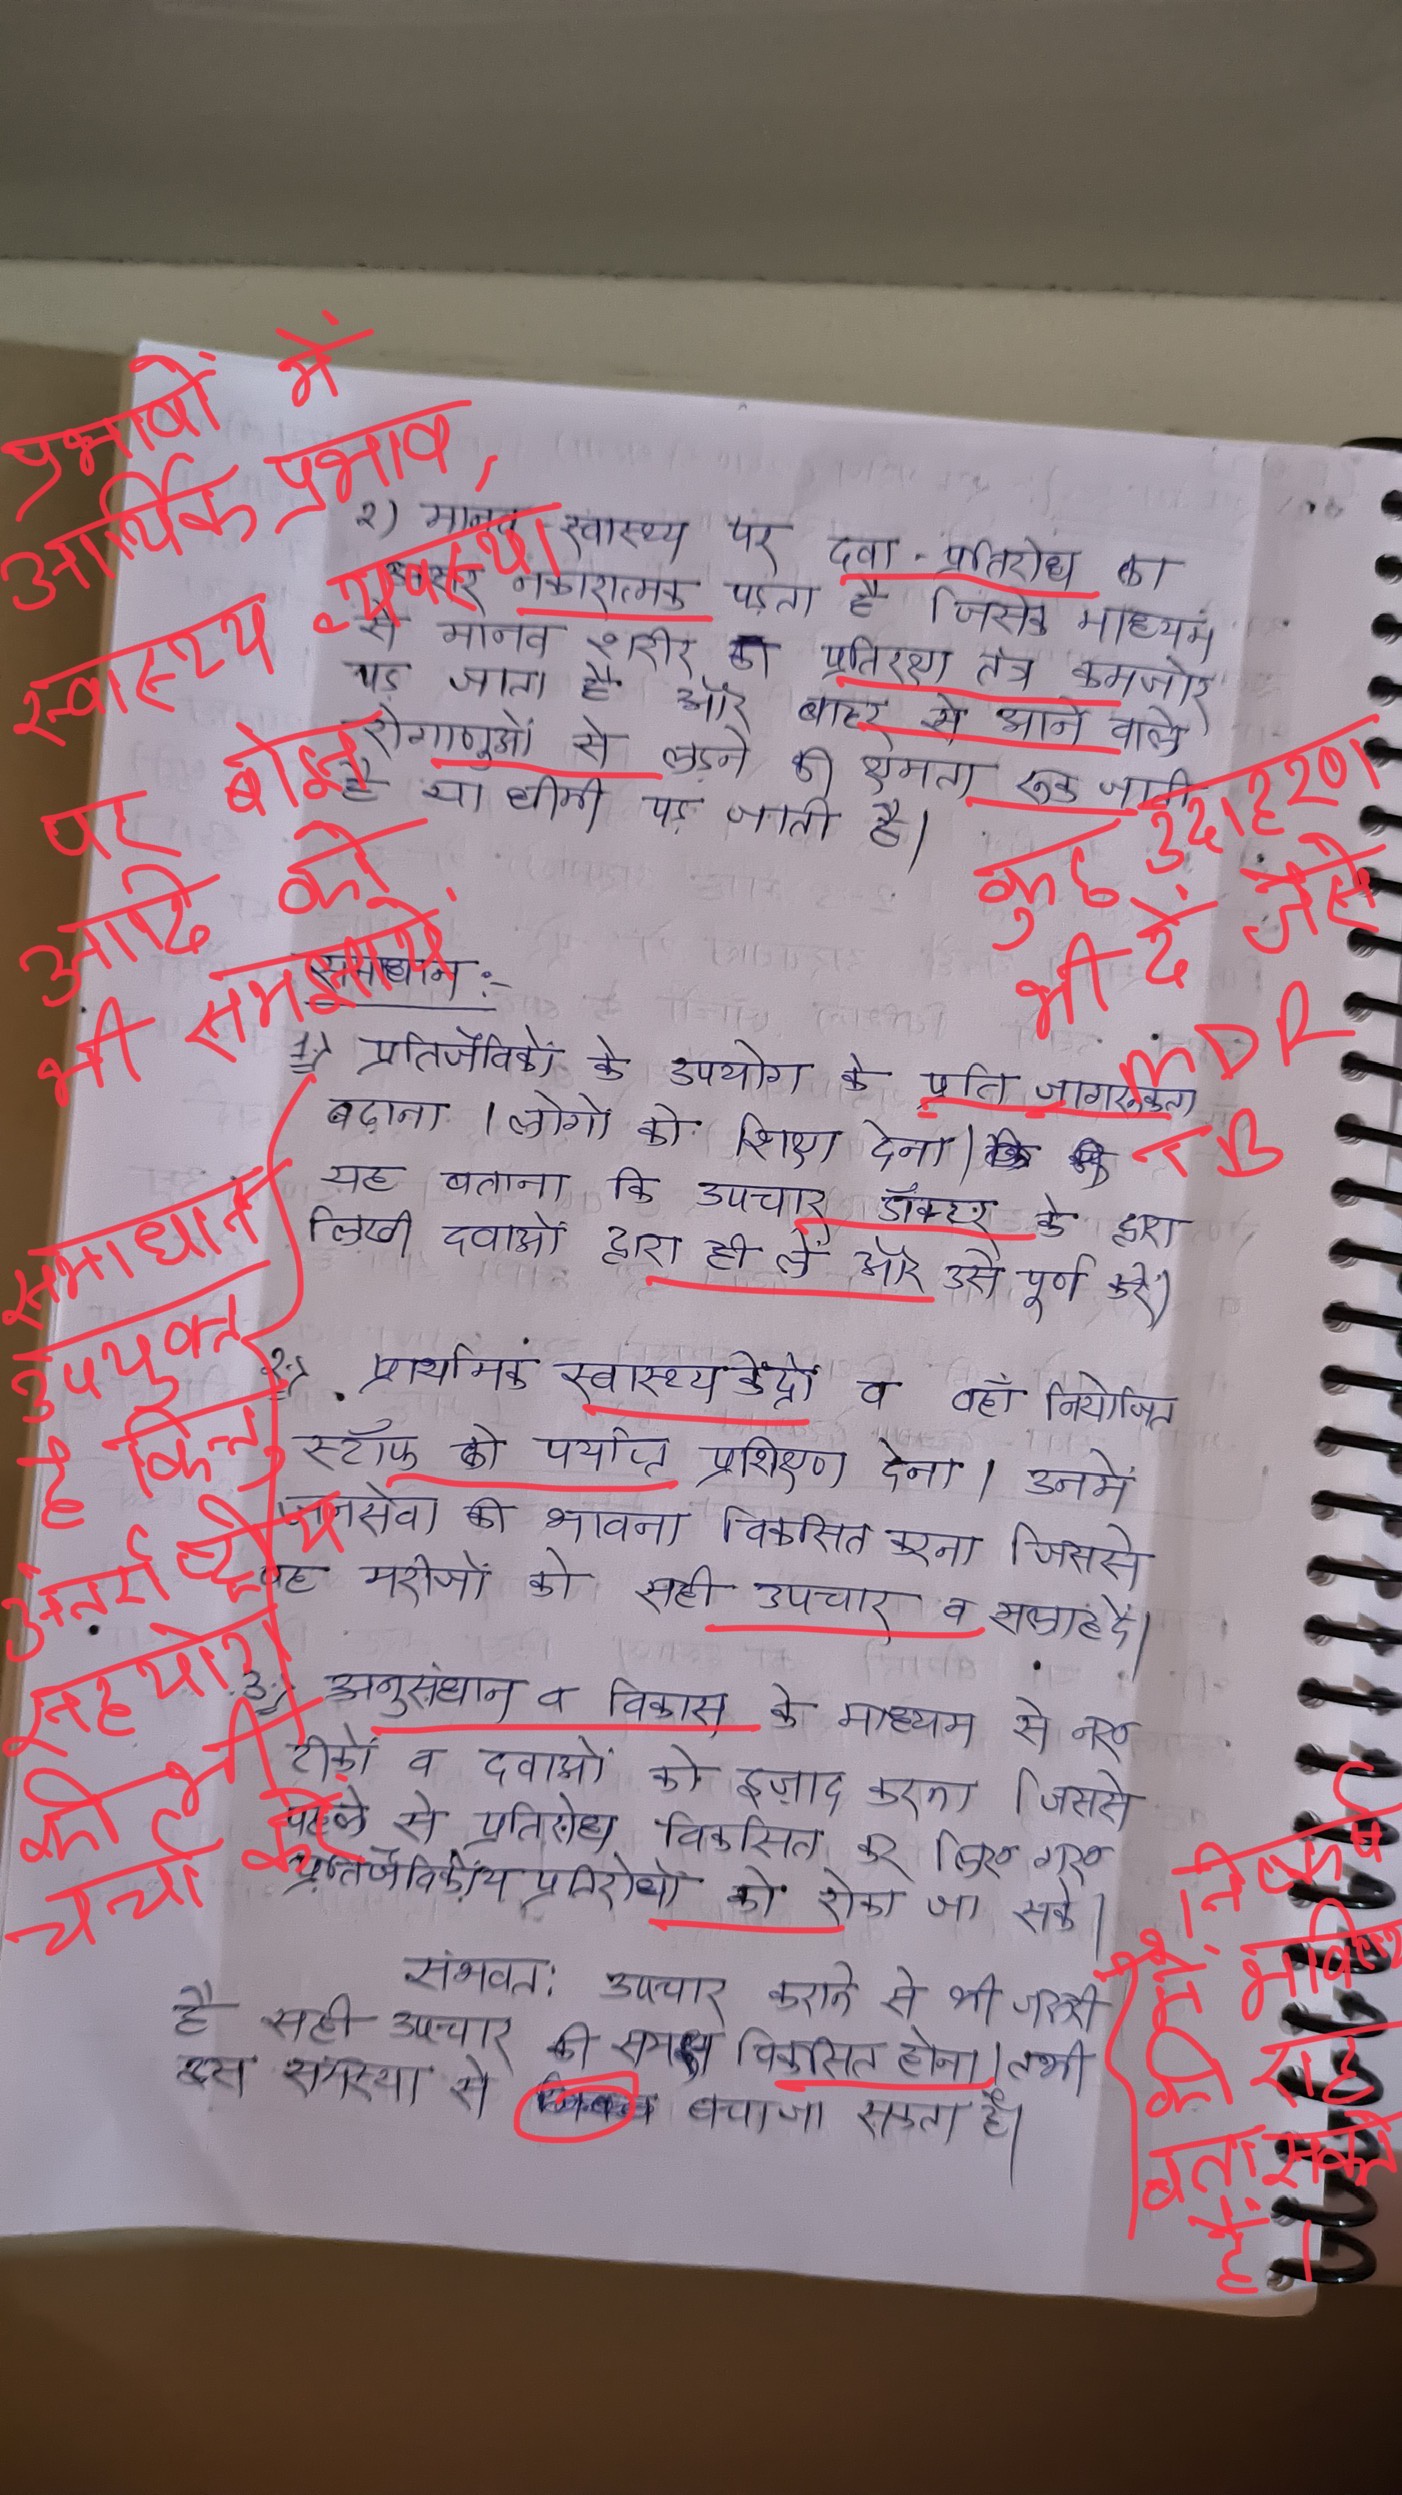 प्रभावों में
आर्थिक प्रभाव,
स्वास्थ्य व्यवस्था
पर बोझ
आदि को
भी समझायें
२) मानव स्वास्थ्य पर दवा - प्रतिरोध का
असर नकारात्मक पड़ता है जिसके माध्यम
से मानव शरीर का प्रतिरक्षा तंत्र कमजोर
पड़ जाता है और बाहर से आने वाले
रोगाणुओं से लड़ने की क्षमता रूक जाती
है या धीमी पड़ जाती है।
कुछ उदाहरण
भी दें जैसे
MDR
TB
समाधान :-
1) प्रतिजैविकों के उपयोग के प्रति जागरूकता
बढ़ाना । लोगो को शिक्षा देना।
यह बताना कि उपचार डॉक्टर के द्वारा
लिखी दवाओं द्वारा ही लें और उसे पूर्ण करें।
समाधान
उपयुक्त
है किन्तु
अंतर्राष्ट्रीय
सहयोग
की भी
चर्चा करें
2) प्राथमिक स्वास्थ्य केंद्रो व वहाँ नियोजित
स्टॉफ को पर्याप्त प्रशिक्षण देना। उनमें
जनसेवा की भावना विकसित करना जिससे
वह मरीजों को सही उपचार व सलाह दें।
3) अनुसंधान व विकास के माध्यम से नए
टीकों व दवाओं को इज़ाद करना जिससे
पहले से प्रतिरोध विकसित कर लिए गए
प्रतिजैविकीय प्रतिरोधों को रोका जा सके।
संभवतः उपचार कराने से भी जरूरी
है सही उपचार की समझ विकसित होना। तभी
इस समस्या से बचा जा सकता है।
निष्कर्ष
में भविष्य
की राह
बता सकते
हैं।